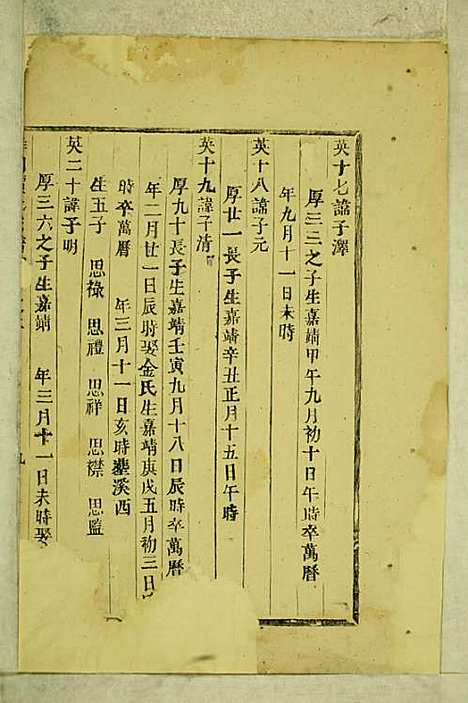 英十七諱子澤
厚三三之子生嘉靖甲午九月初十日午時卒萬曆
年九月十一日未時
英十八諱子元
厚廿一長子生嘉靖辛丑正月十五日午時
英十九諱子清
厚九十長子生嘉靖壬寅九月十八日辰時卒萬曆
年二月廿一日辰時娶金氏生嘉靖庚戌五月初三日
時卒萬曆 年三月十一日亥時塟溪西
生五子 思祿 思禮 思祥 思襟 思鑑
英二十諱子明
厚三六之子生嘉靖 年三月十一日未時娶